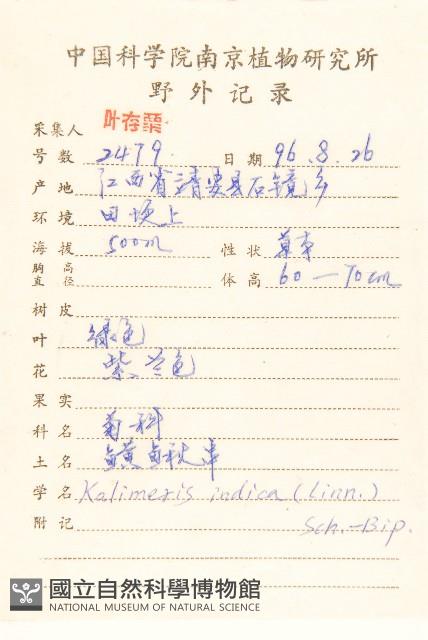 中国科学院南京植物研究所
野外记录
采集人 叶存粟
号数 2479 日期 96.8.26
产地 江西省靖安县石镜乡
环境 田埂上
海拔 500m 性状 草本
胸高直径 体高 60—70cm
树皮
叶 绿色
花 紫兰色
果实
科名 菊科
土名
学名 Kalimeris indica (Linn.)
附记 Sch.-Bip.
國立自然科學博物館
NATIONAL MUSEUM OF NATURAL SCIENCE